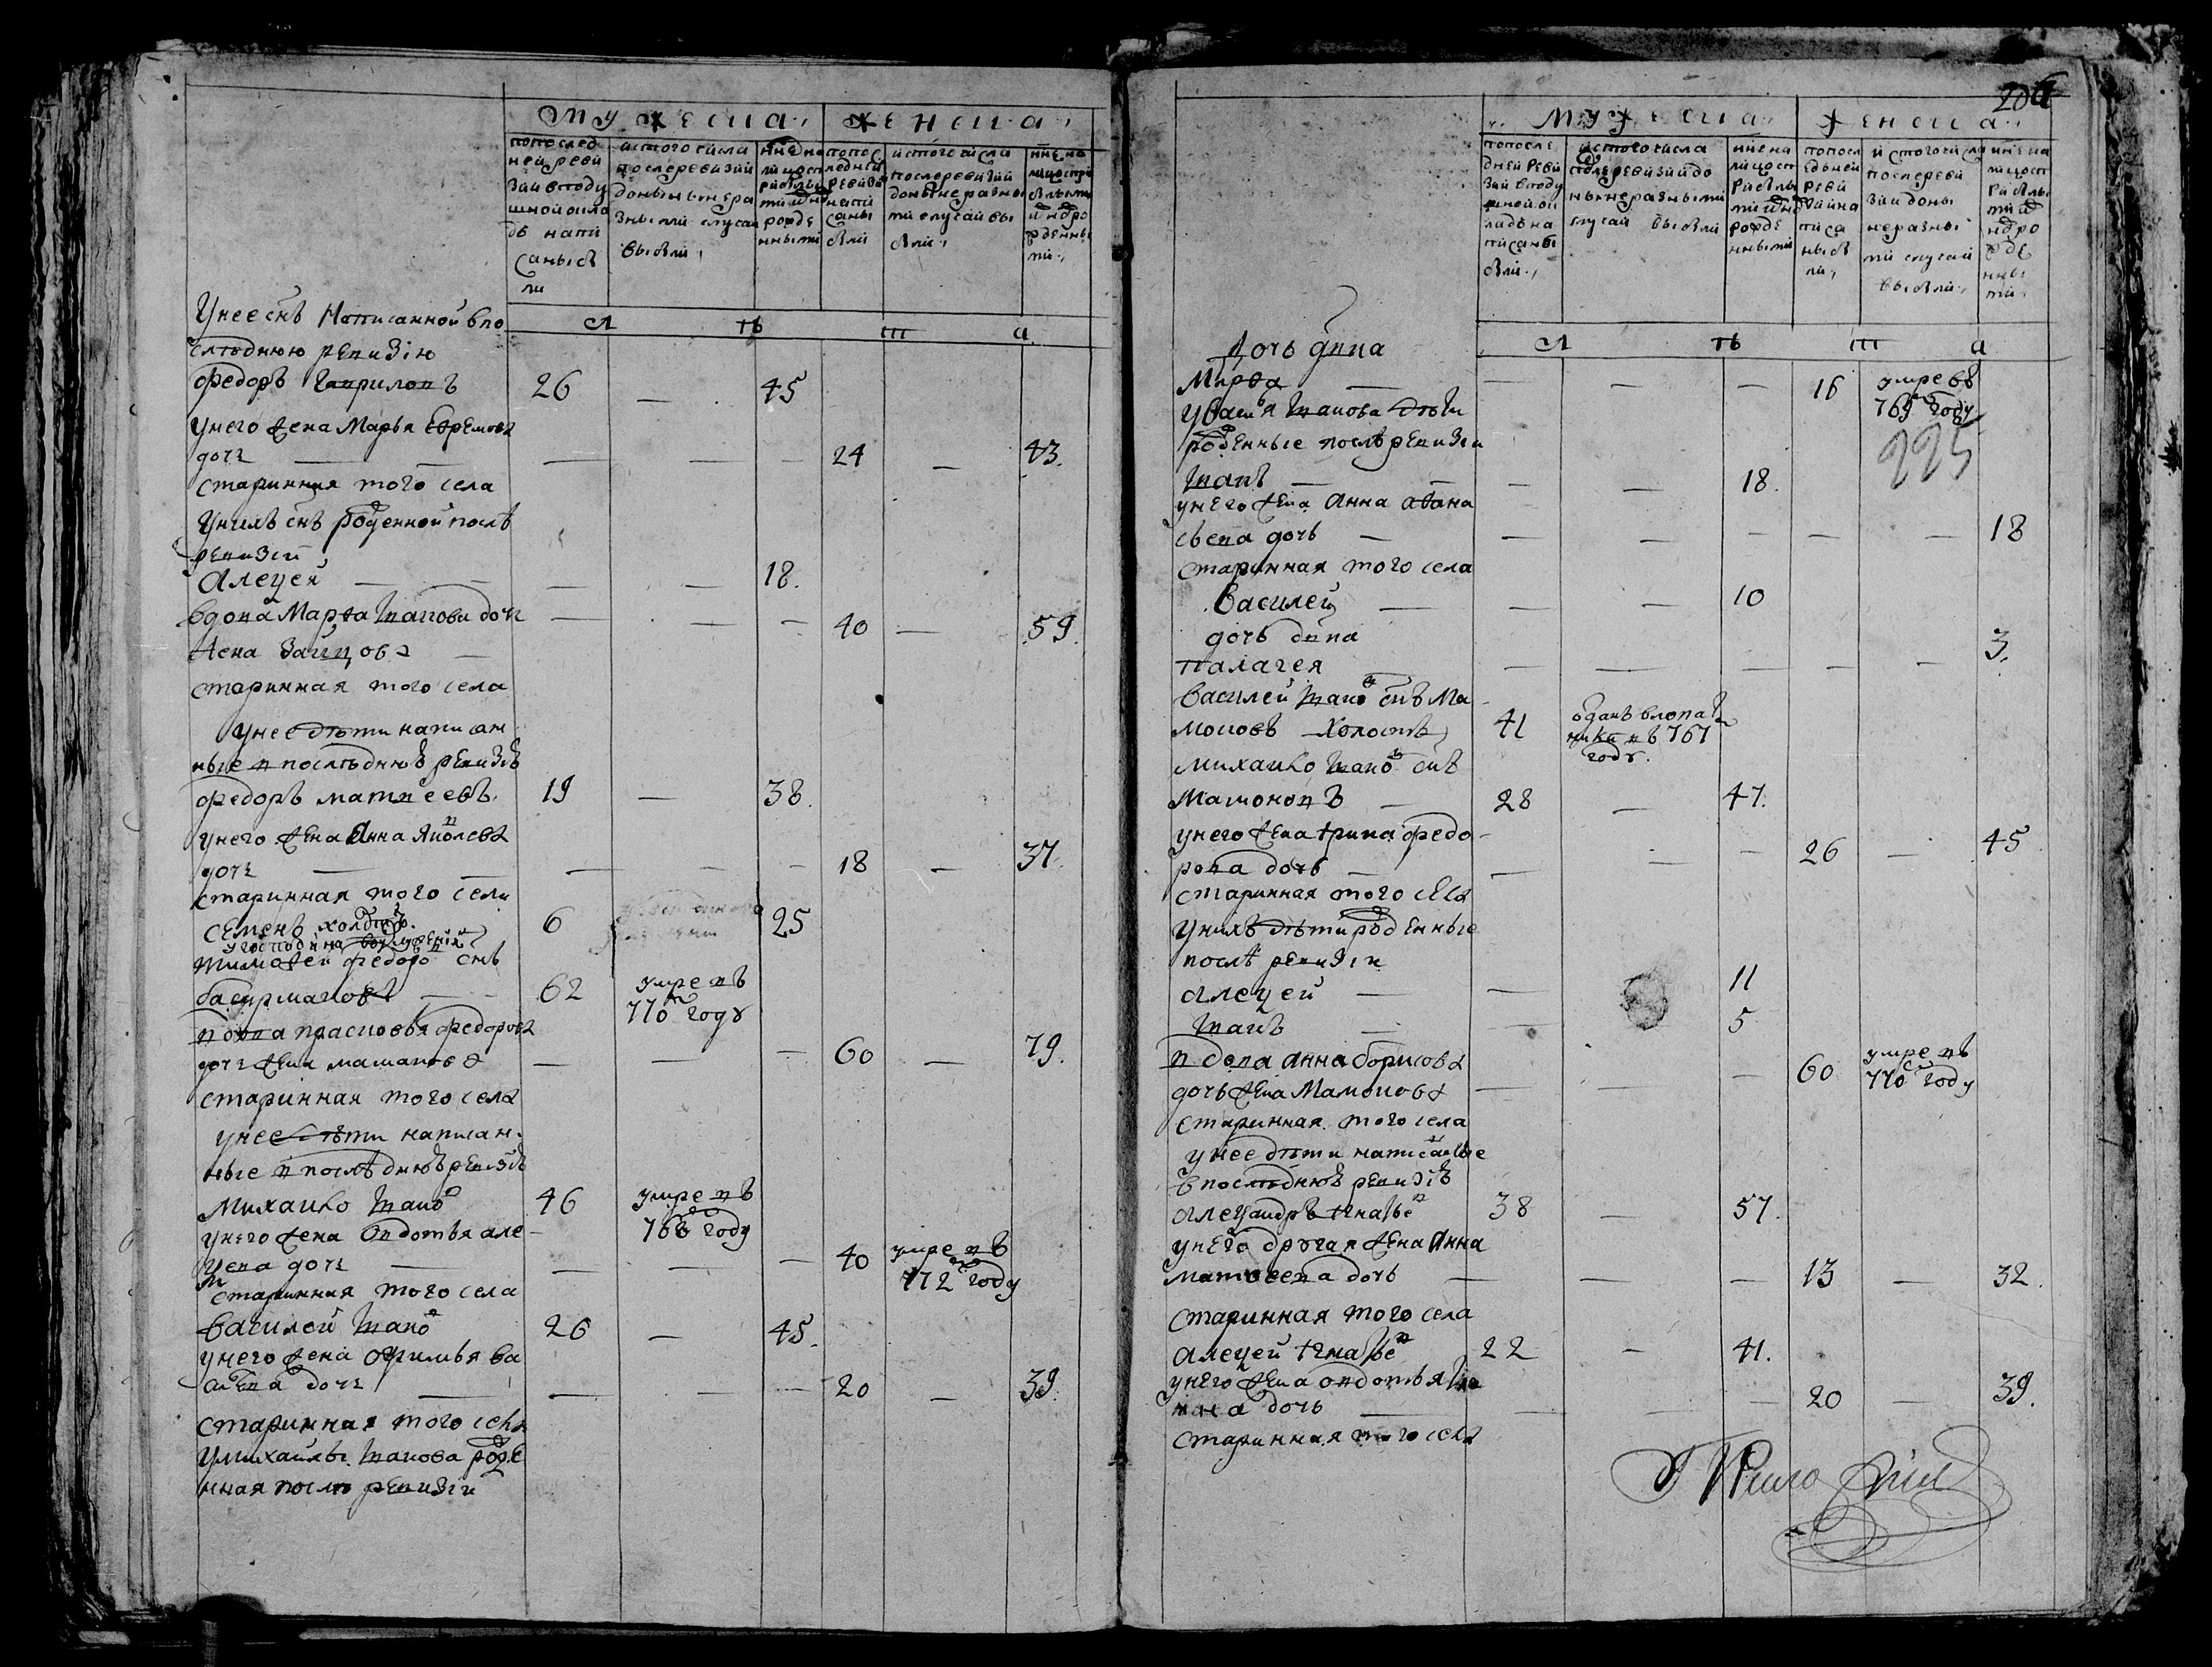 мужеска
женска
попослед
ней реви
зии вподу
шной окла
де напи
саныб
ли
истого числа
послеревизии
доныне ра
зными случаи
выбыли
попос
ледней
ревизи
напи
саны
были
истогочисла
послеревизии
доныне разны
ми случаи вы
были
лѣта
Унее снъ Написанной впо
слѣднюю ревизїю
Федоръ Гавриловъ 26 — 45
Унего жена Марья Ефремова
дочь — — — — — 24 — 43.
старинная того села
Унихъ снъ рожденной послѣ
ревизїи
Алеѯей — — — 18.
вдова Марѳа Иванова дочь — — — 40 — 59.
жена Заицова —
старинная того села
Унее дѣти написан
ные в послѣднюю ревизїю
Федоръ матвеевъ. 19 — 38.
Унего жена Анна Яковлева
дочь — — — — — 18 — 37.
старинная того села
Семенъ холостъ. 6 25
у господина
Тимофеи Федоровъ снъ
62 умре въ
770м году
вдова прасковья Федорова
дочь жена — — — 60 — 79.
старинная того села
унее дѣти написан
ные в послѣднюю ревизїю
Михаило Иванов 46 умре въ
768 году
Унего жена Овдотья але
ѯева дочь — — — — 40 умре въ
772 году
старинная того села
Василеи Иванов 26 — 45.
Унего жена Офимья ва
дочь — — — — 20 — 39.
старинная того села
Умихаилы Иванова рожде
нная послѣ ревизїи
206
мужеска
женска
попосле
дней реви
зии вподу
шной ок
ладе на
писаны
были
истогочисла
послеревизии до
ныне разными
случаи выбыли
попосл
едьней
реви
зии на
писа
ныбы
ли
истогочисла
послереви
зии доны
не разны
ми случаи
выбыли
лѣта
Дочь девка
Марѳа — — — — 16 умре въ
769м году
225
Уваси Иванова дѣти
рожденные послѣ ревизїи
Иванъ — — — — 18.
унего жена Анна аѳана
сьева дочь — — — — — — 18
старинная того села
Василеи — — — 10
дочь девка
палагея — — — — — 3.
Василеи Иванов снъ Ма
моновъ холостъ 41 отданъ
въ 767
году.
Михаило Иванов снъ
Мамоновъ — 28 — 47.
унего жена Ирина Федо
рова дочь — — — — 26 — 45
старинная того села
Унихъ дѣти рожденные
послѣ ревизїи
Алеѯей — — 11
Иванъ — — 5
вдова Анна борисова
дочь жена Мамонова — — — 60 умре въ
770м году
старинная того села
унее дѣти написанные
впослѣднюю ревизїю
Алеѯандръ Игнатьев 38 — 57.
унего другая жена Анна
матвеева дочь — — — 13 — 32.
старинная того села
Алеѯеи Игнатьев 22 — 41.
унего жена овдотья
дочь — — — — 20 — 39.
старинная того села